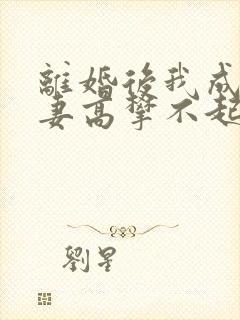 離婚後我成
妻高攀不起
劉星